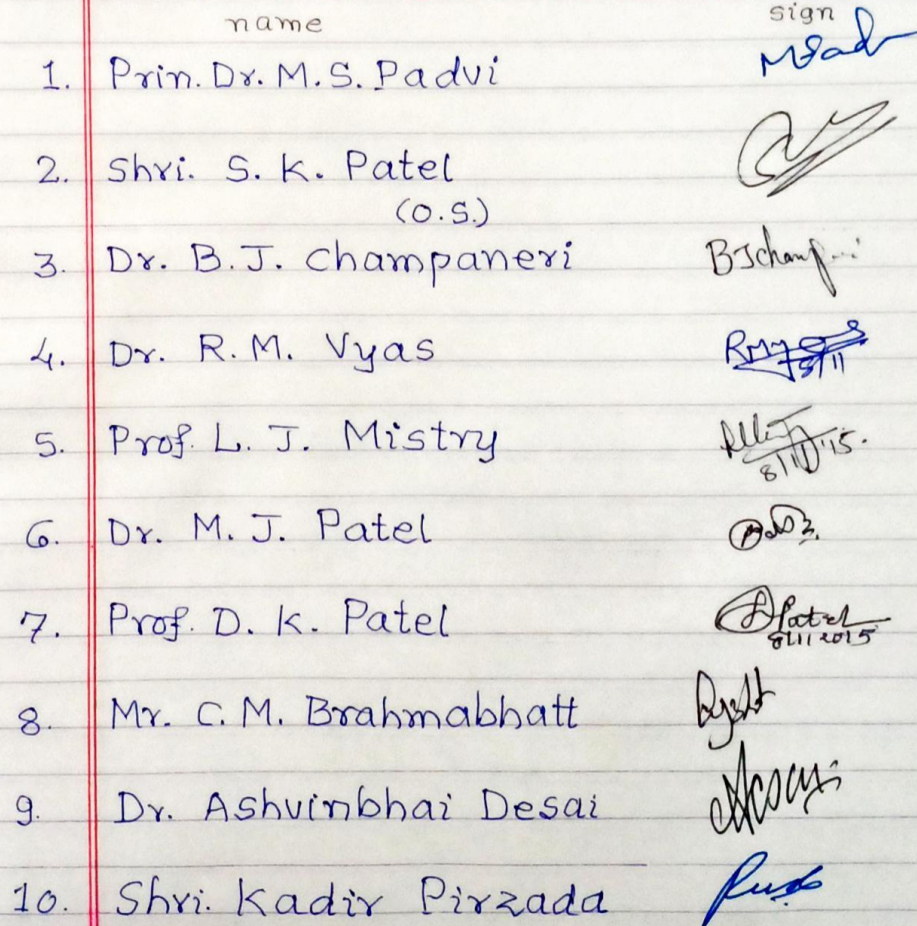 name sign
1. Prin. Dr. M.S. Padvi
2. Shri. S. K. Patel
(O.S.)
3. Dr. B.J. Champaneri BJChamp
4. Dr. R.M. Vyas 8/11
5. Prof. L. J. Mistry 8/11/15.
6. Dr. M. J. Patel
7. Prof. D. K. Patel DPatel
8/11/2015
8. Mr. C.M. Brahmabhatt
9. Dr. Ashvinbhai Desai
10. Shri. Kadir Pirzada